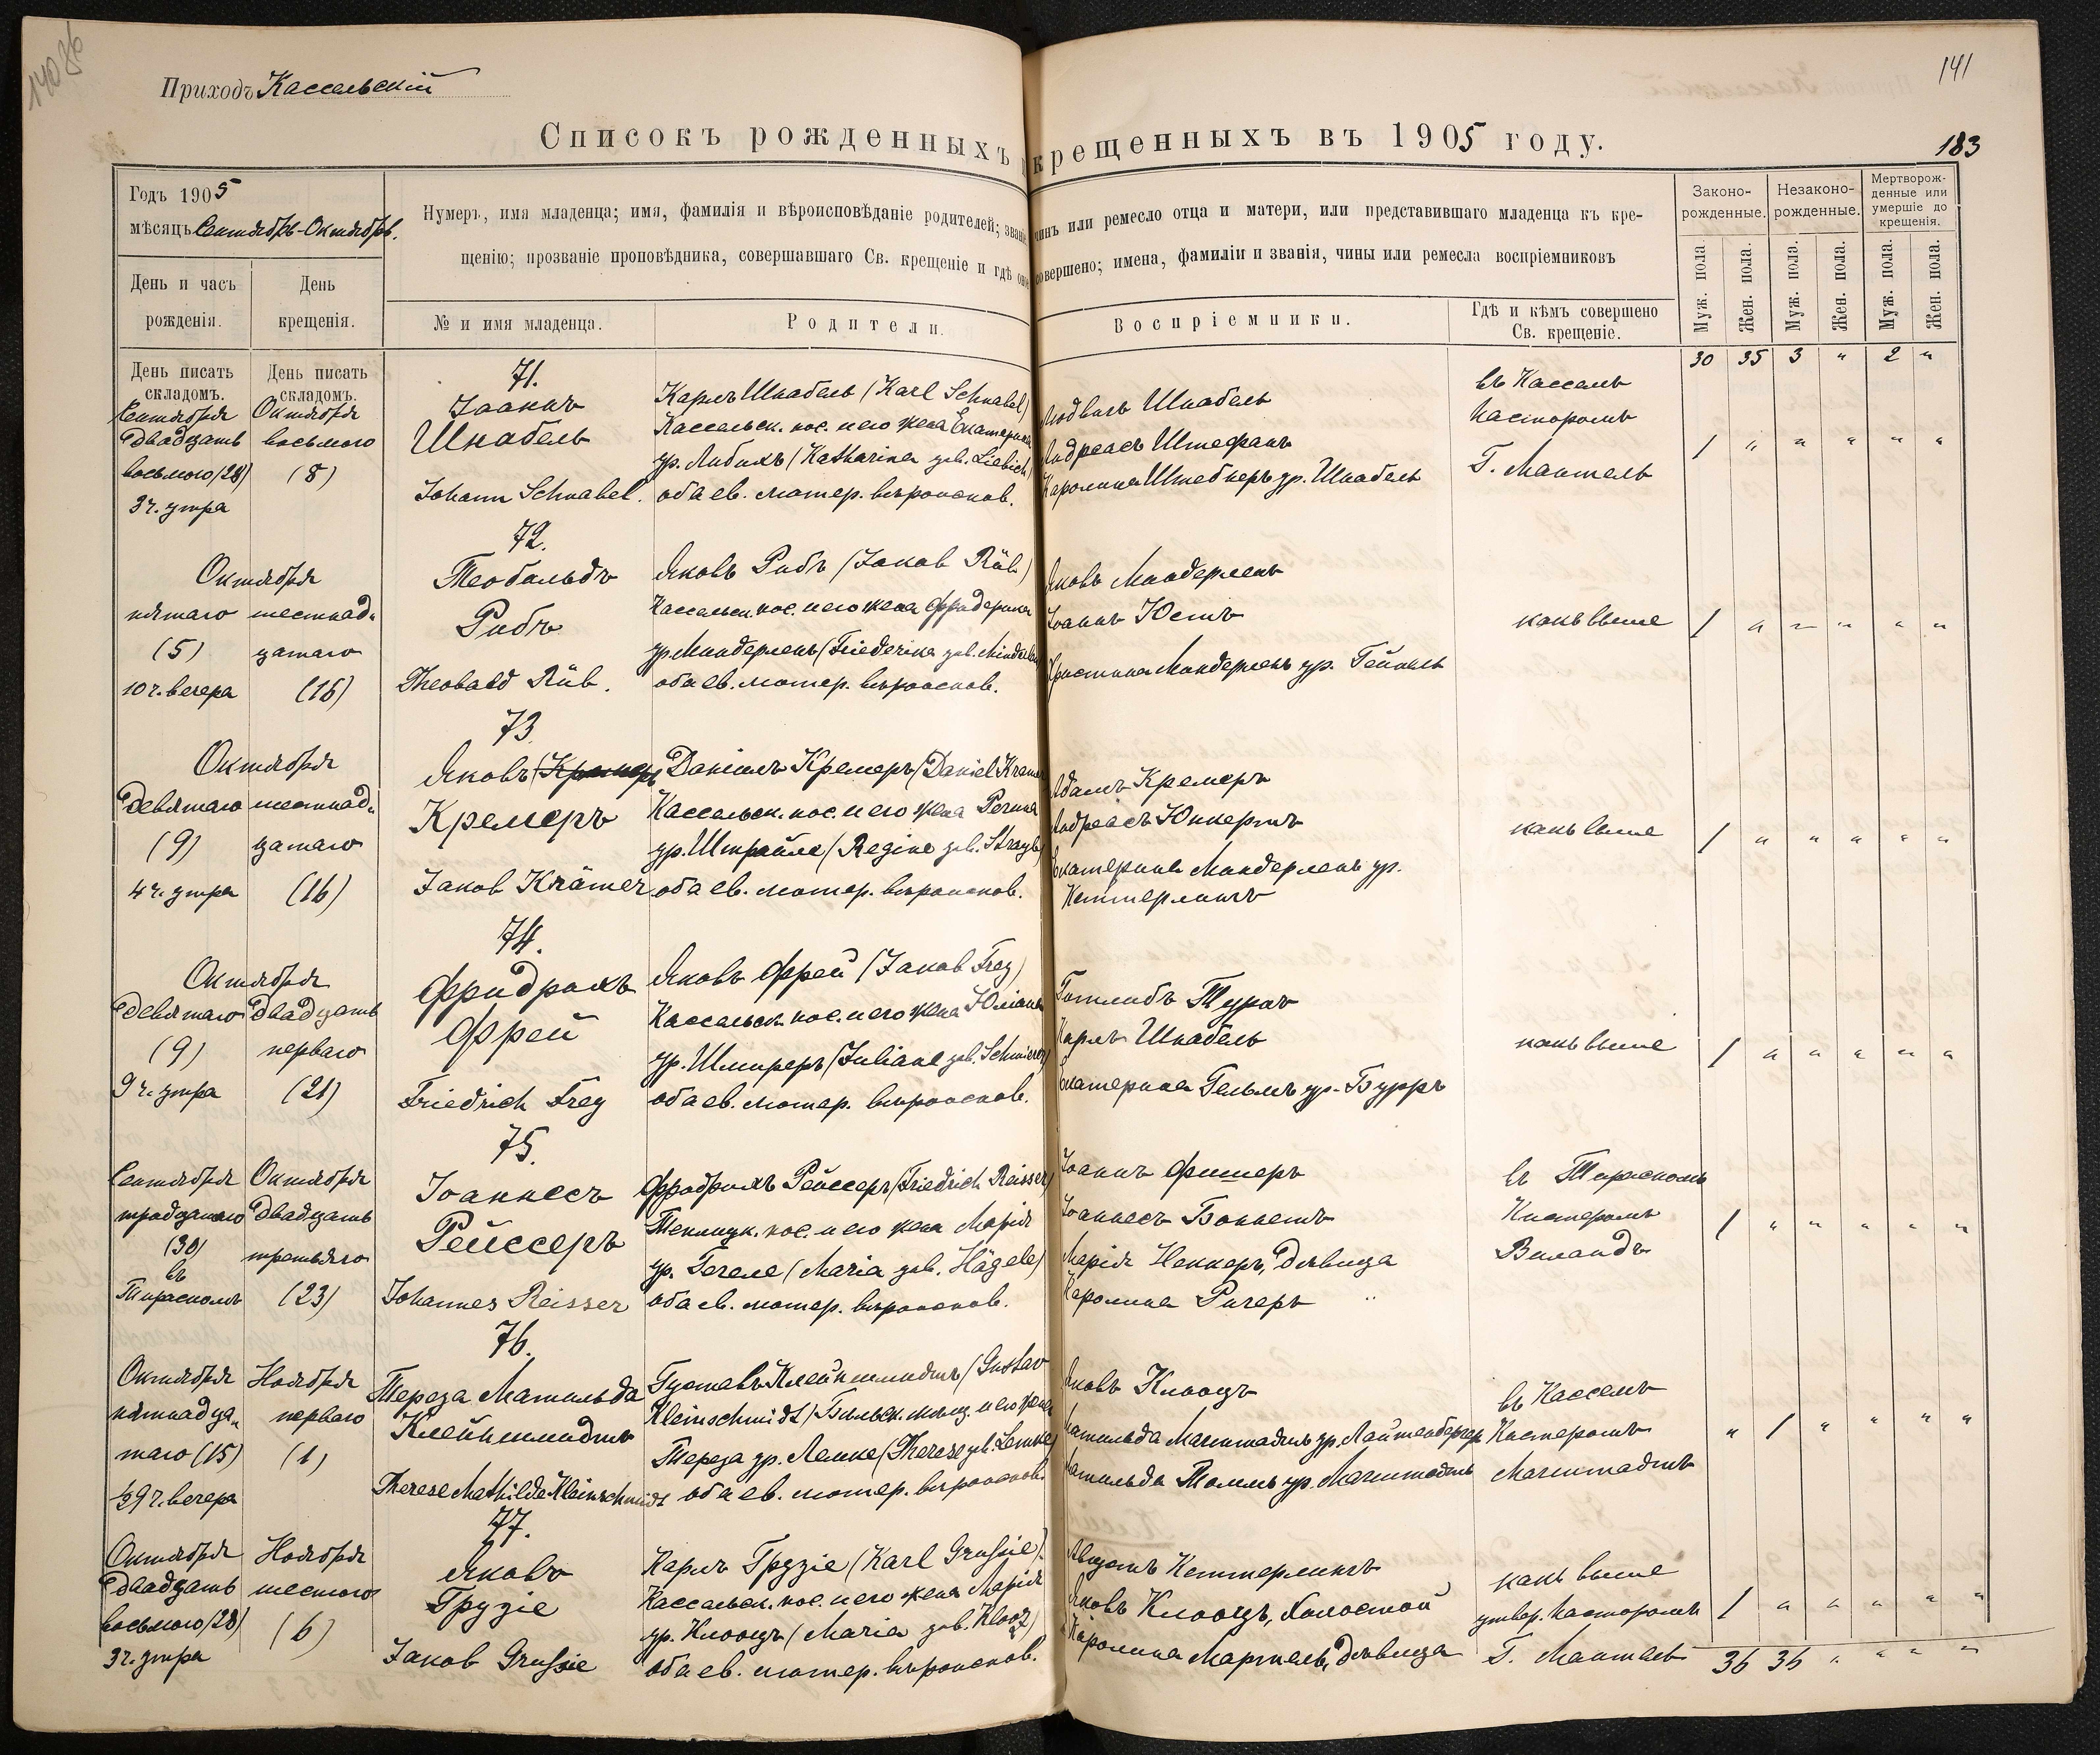 140 86
141
183
Приходъ Кассельскій
Списокъ рожденныхъ крещенныхъ въ 1905 году.
Годъ 1905
мѣсяцъ Сентябрь-Октябрь.
Нумеръ, имя младенца; имя, фамилія и вѣроисповѣданіе родителей; званіе чинъ или ремесло отца и матери, или представившаго младенца къ кре-
щенію; прозваніе проповѣдника, совершавшаго Св. крещеніе и гдѣ оное совершено; имена, фамиліи и званія, чины или ремесла воспріемниковъ
Законо-
рожденные.
Незаконо-
рожденные.
Мертворож-
денные или
умершіе до
крещенія.
День и часъ
рожденія.
День
крещенія.
№ и имя младенца.
Родители.
Воспріемники.
Гдѣ и кѣмъ совершено
Св. крещеніе.
Муж. пола.
Жен. пола.
Муж. пола.
Жен. пола.
Муж. пола.
Жен. пола.
День писать
складомъ.
День писать
складомъ.
30 35 3 " 2 "
Сентября
двадцать
восьмого (28)
3 ч. утра
Октября
восьмого
(8)
71.
Іоаннъ
Шнабель
Johann Schnabel.
Карлъ Шнабель (Karl Schnabel)
Кассельск. пос. и его жена Екатерина
ур. Либихъ (Katharina geb. Liebich)
оба ев. лютер. вѣроисков.
Людвигъ Шнабель
Андреасъ Штефанъ
Каролина Штебнеръ ур. Шнабель
въ Кассель
Пасторомъ
Г. Мантель
1 " " " " "
Октября
пятаго
(5)
10 ч. вечера
шестнад-
цатаго
(16)
72.
Теобальдъ
Рибъ
Theobald Rüb.
Яковъ Рибъ (Jakob Rüb)
Кассельск. пос. и его жена Фридерика
ур. Миндерленъ (Friederika geb. Minderlen)
оба ев. лютер. вѣроисков.
Яковъ Миндерленъ
Іоаннъ Юстъ
Христина Миндерленъ ур. Гейнель
какъ выше
1 " " " " "
Октября
девятаго
(9)
4 ч. утра
шестнад-
цатаго
(16)
73
Яковъ Кремеръ
Кремеръ
Jakob Krämer
Даніилъ Кремеръ (Daniel Kramer
Кассельск. пос. и его жена Регина
ур. Штрайле (Regine geb. Strayle)
оба ев. лютер. вѣроисков.
Адамъ Кремеръ
Андреасъ Юнкертъ
Екатерина Миндерленъ ур.
Кеттерлингъ
какъ выше
1 " " " " "
Октября
девятаго
(9)
9 ч. утра
двадцать
перваго
(21)
74.
Фридрихъ
Фрей
Friedrich Frey
Яковъ Фрей (Jakob Frey)
Кассельск. пос. и его жена Юліана
ур. Шмиреръ (Juliane geb. Schmierer)
оба ев. лютер. вѣроисков.
Готлибъ Турнъ
Карлъ Шнабель
Екатерина Гельмъ ур. Бурръ
какъ выше
1 " " " " "
Сентября
тридцатаго
(30)
въ
Тирасполѣ
Октября
двадцать
третьяго
(23)
75.
Іоаннесъ
Рейссеръ
Johannes Reisser
Фридрихъ Рейссеръ (Friedrich Reisser)
Теплицк. пос. и его жена Марія
ур. Гегеле (Maria geb. Hägele)
оба ев. лютер. вѣроисков.
Іоаннъ Фишеръ
Іоаннесъ Боннетъ
Марія Неккеръ, дѣвица
Каролина Ригеръ "
въ Тирасполѣ
Пасторомъ
Виландъ
1 " " " " "
Октября
пятнадца-
таго (15)
½9 ч. вечера
Ноября
перваго
(1)
76.
Тереза Матильда
Клейншмидтъ
Therese Mathilde Kleinschmidt
Густавъ Клейншмидтъ (Gustav
Kleinschmidt) Бильск. мѣщ. и его жена
Тереза ур. Лемке (Therese geb. Lemke)
оба ев. лютер. вѣроисков.
Яковъ Клооцъ
Матильда Магштадтъ ур. Лаутенбергер
Матильда Толмъ ур. Магштадтъ
въ Кассель
Пасторомъ
Магштадтъ
" 1 " " " "
Октября
двадцать
восьмого (28)
3 ч. утра
Ноября
шестого
(6)
77.
Яковъ
Грузіе
Jakob Grusie
Карлъ Грузіе (Karl Grusie)
Кассельск. пос. и его жена Марія
ур. Клооцъ (Maria geb. Klooz)
оба ев. лютер. вѣроисков.
Августъ Кеттерлингъ
Яковъ Клооцъ, холостой
Каролина Мартель, дѣвица
какъ выше
утвер. пасторомъ
Г. Мантель
1 " " " " "
36 36 " " " "